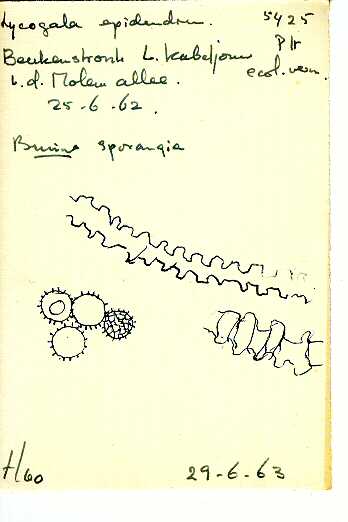 Lycogala epidendrum. 5425
Beukenstronk L. Kabeljouw Plr
i.d. Molen allee. ecol. verm.
25-6-62.
Bruine sporangia
H/60 29-6-63